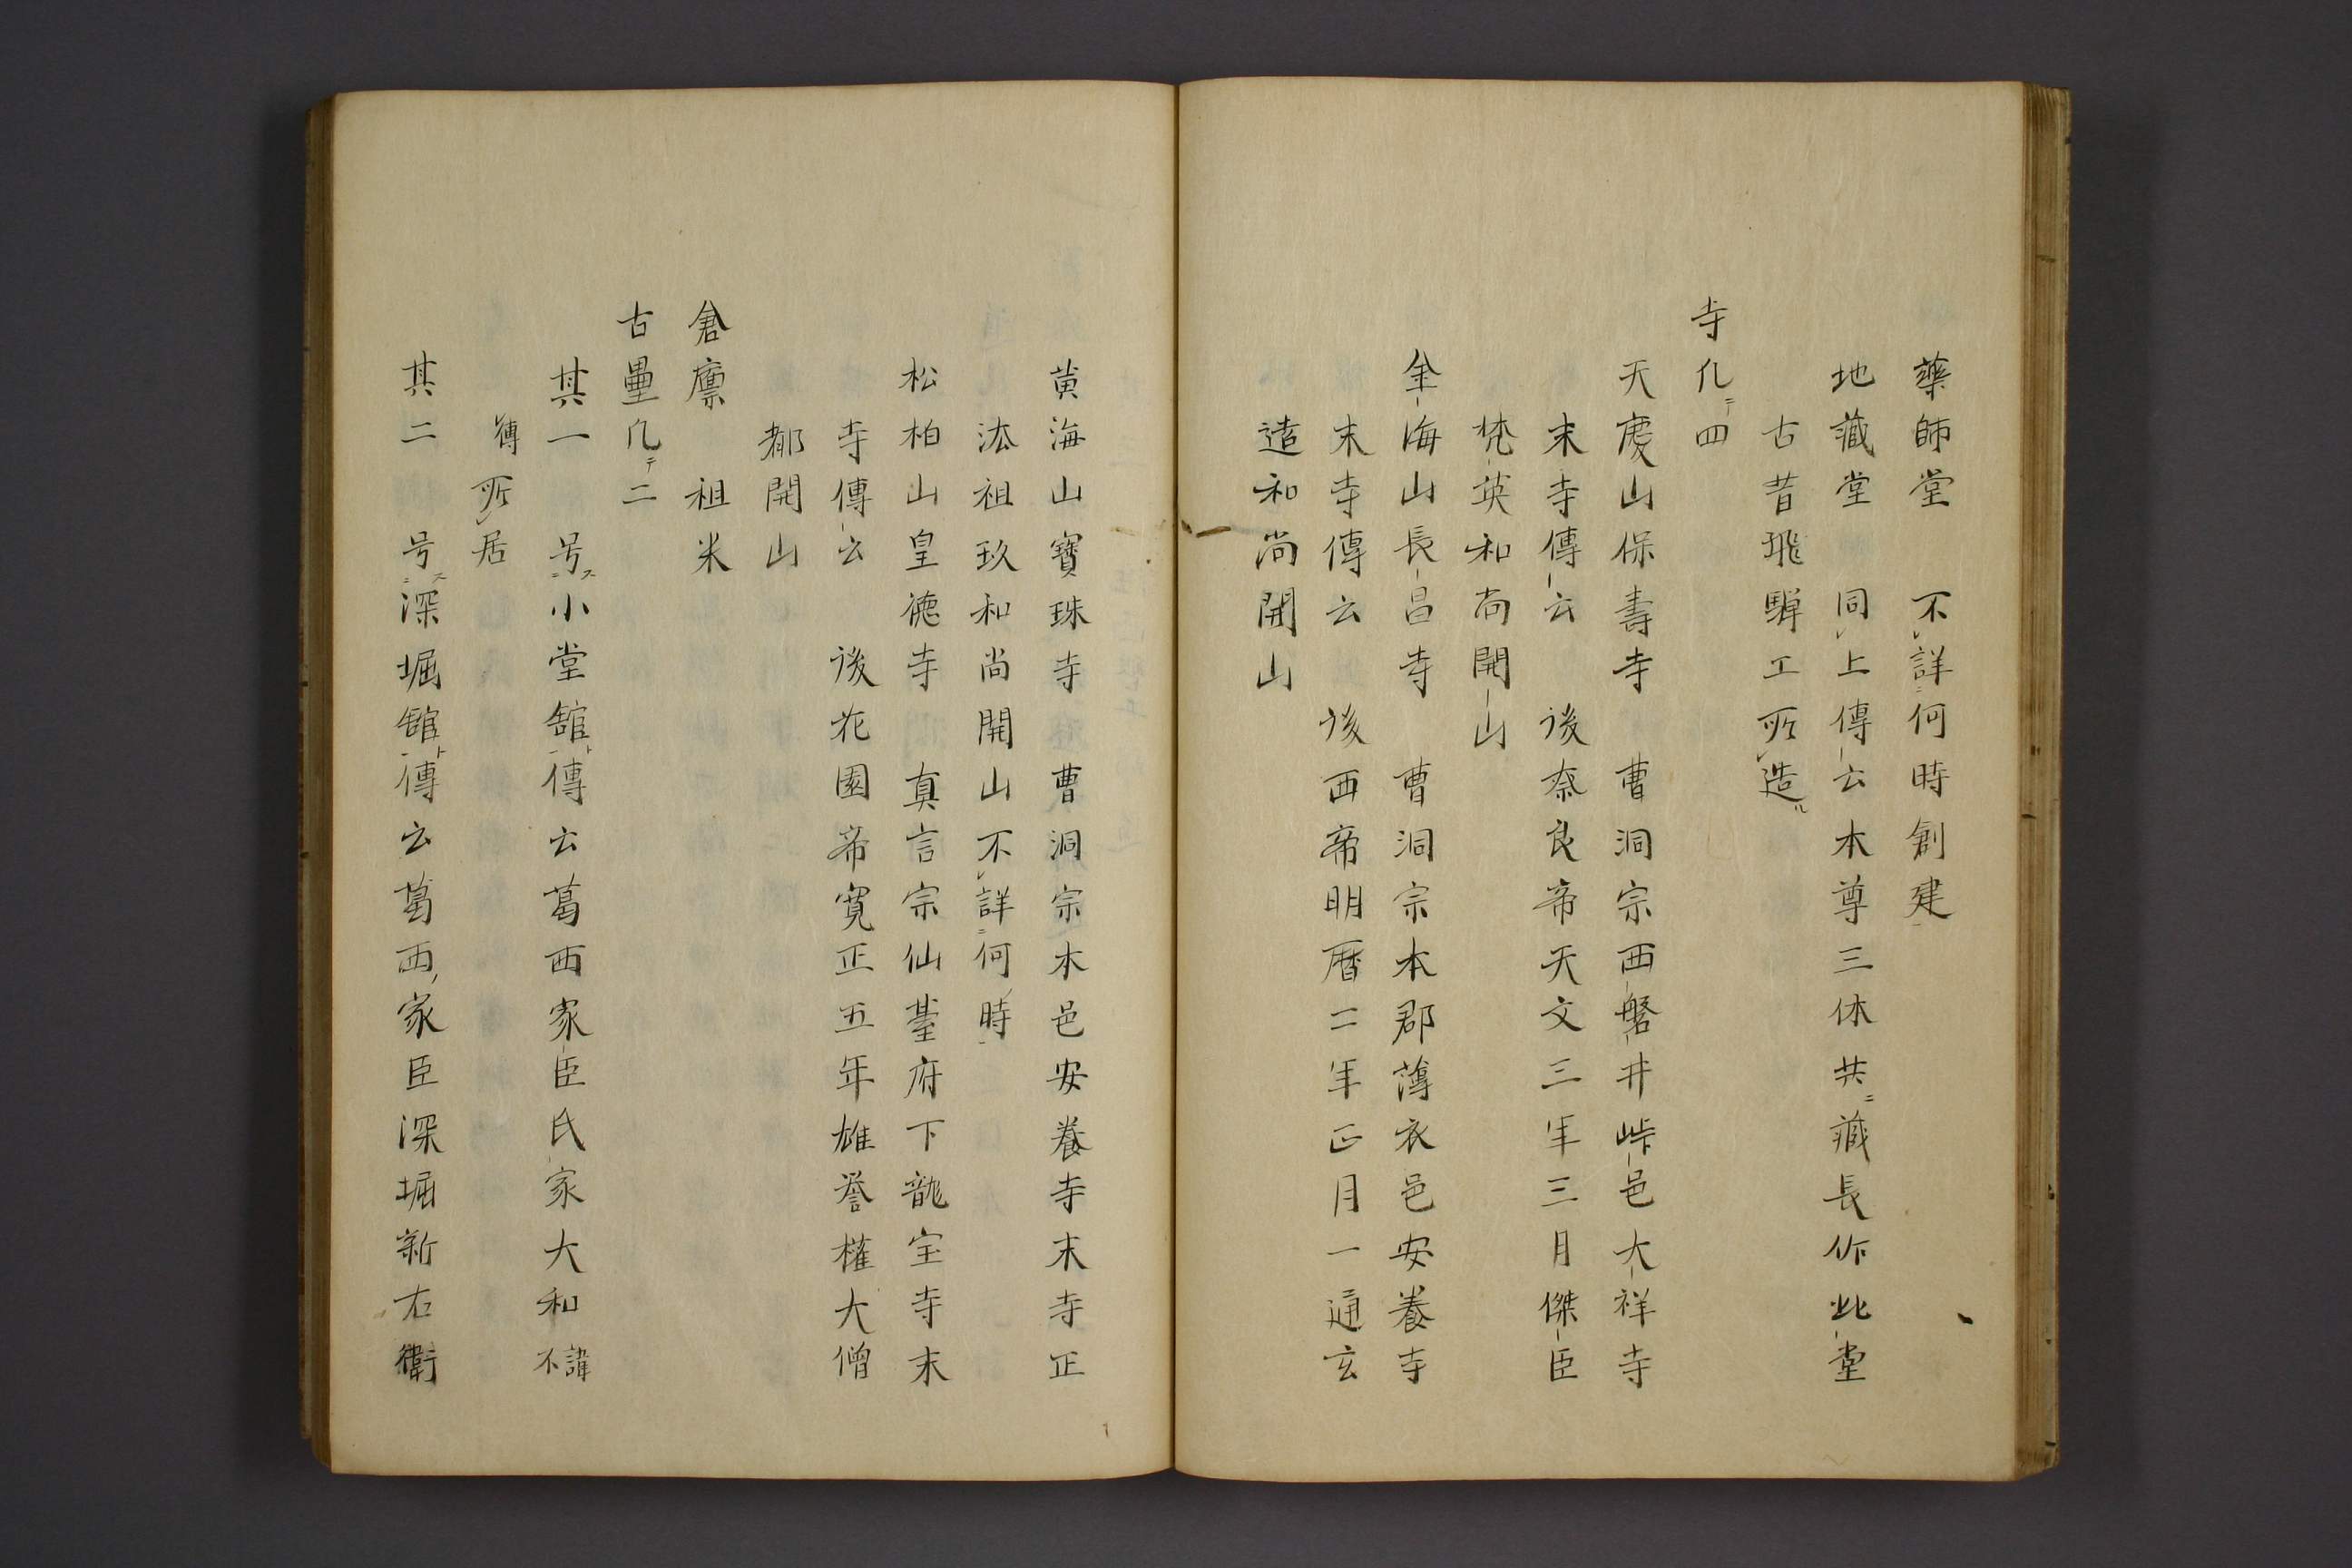 藥師堂　不詳何時創建
地藏堂　同上傳云木尊三体共藏長作此堂
古昔飛騨工所造
寺凡四
天慶山保壽寺　曹洞宗西磐井峠邑大祥寺
末寺傳云　後奈良帝天文三年三月傑臣
梵英和尚開山
金海山長昌寺　曹洞宗本郡薄衣邑安養寺
末寺傳云　後西帝明暦二年正月一通玄
逵和尚開山
黄海山寶珠寺曹洞宗木邑安養寺末寺正
法祖玖和尚開山不詳何時
松柏山皇德寺　真言宗仙臺府下龍宝寺末
寺傳云　後花園帝寛正五年雄誉權大僧
都開山
倉廩　祖米
古壘凡二
其一　号小堂舘傳云葛西家臣氏家大和諱不
傳所居
其二　号深堀舘傳云葛西家臣深堀新右衛